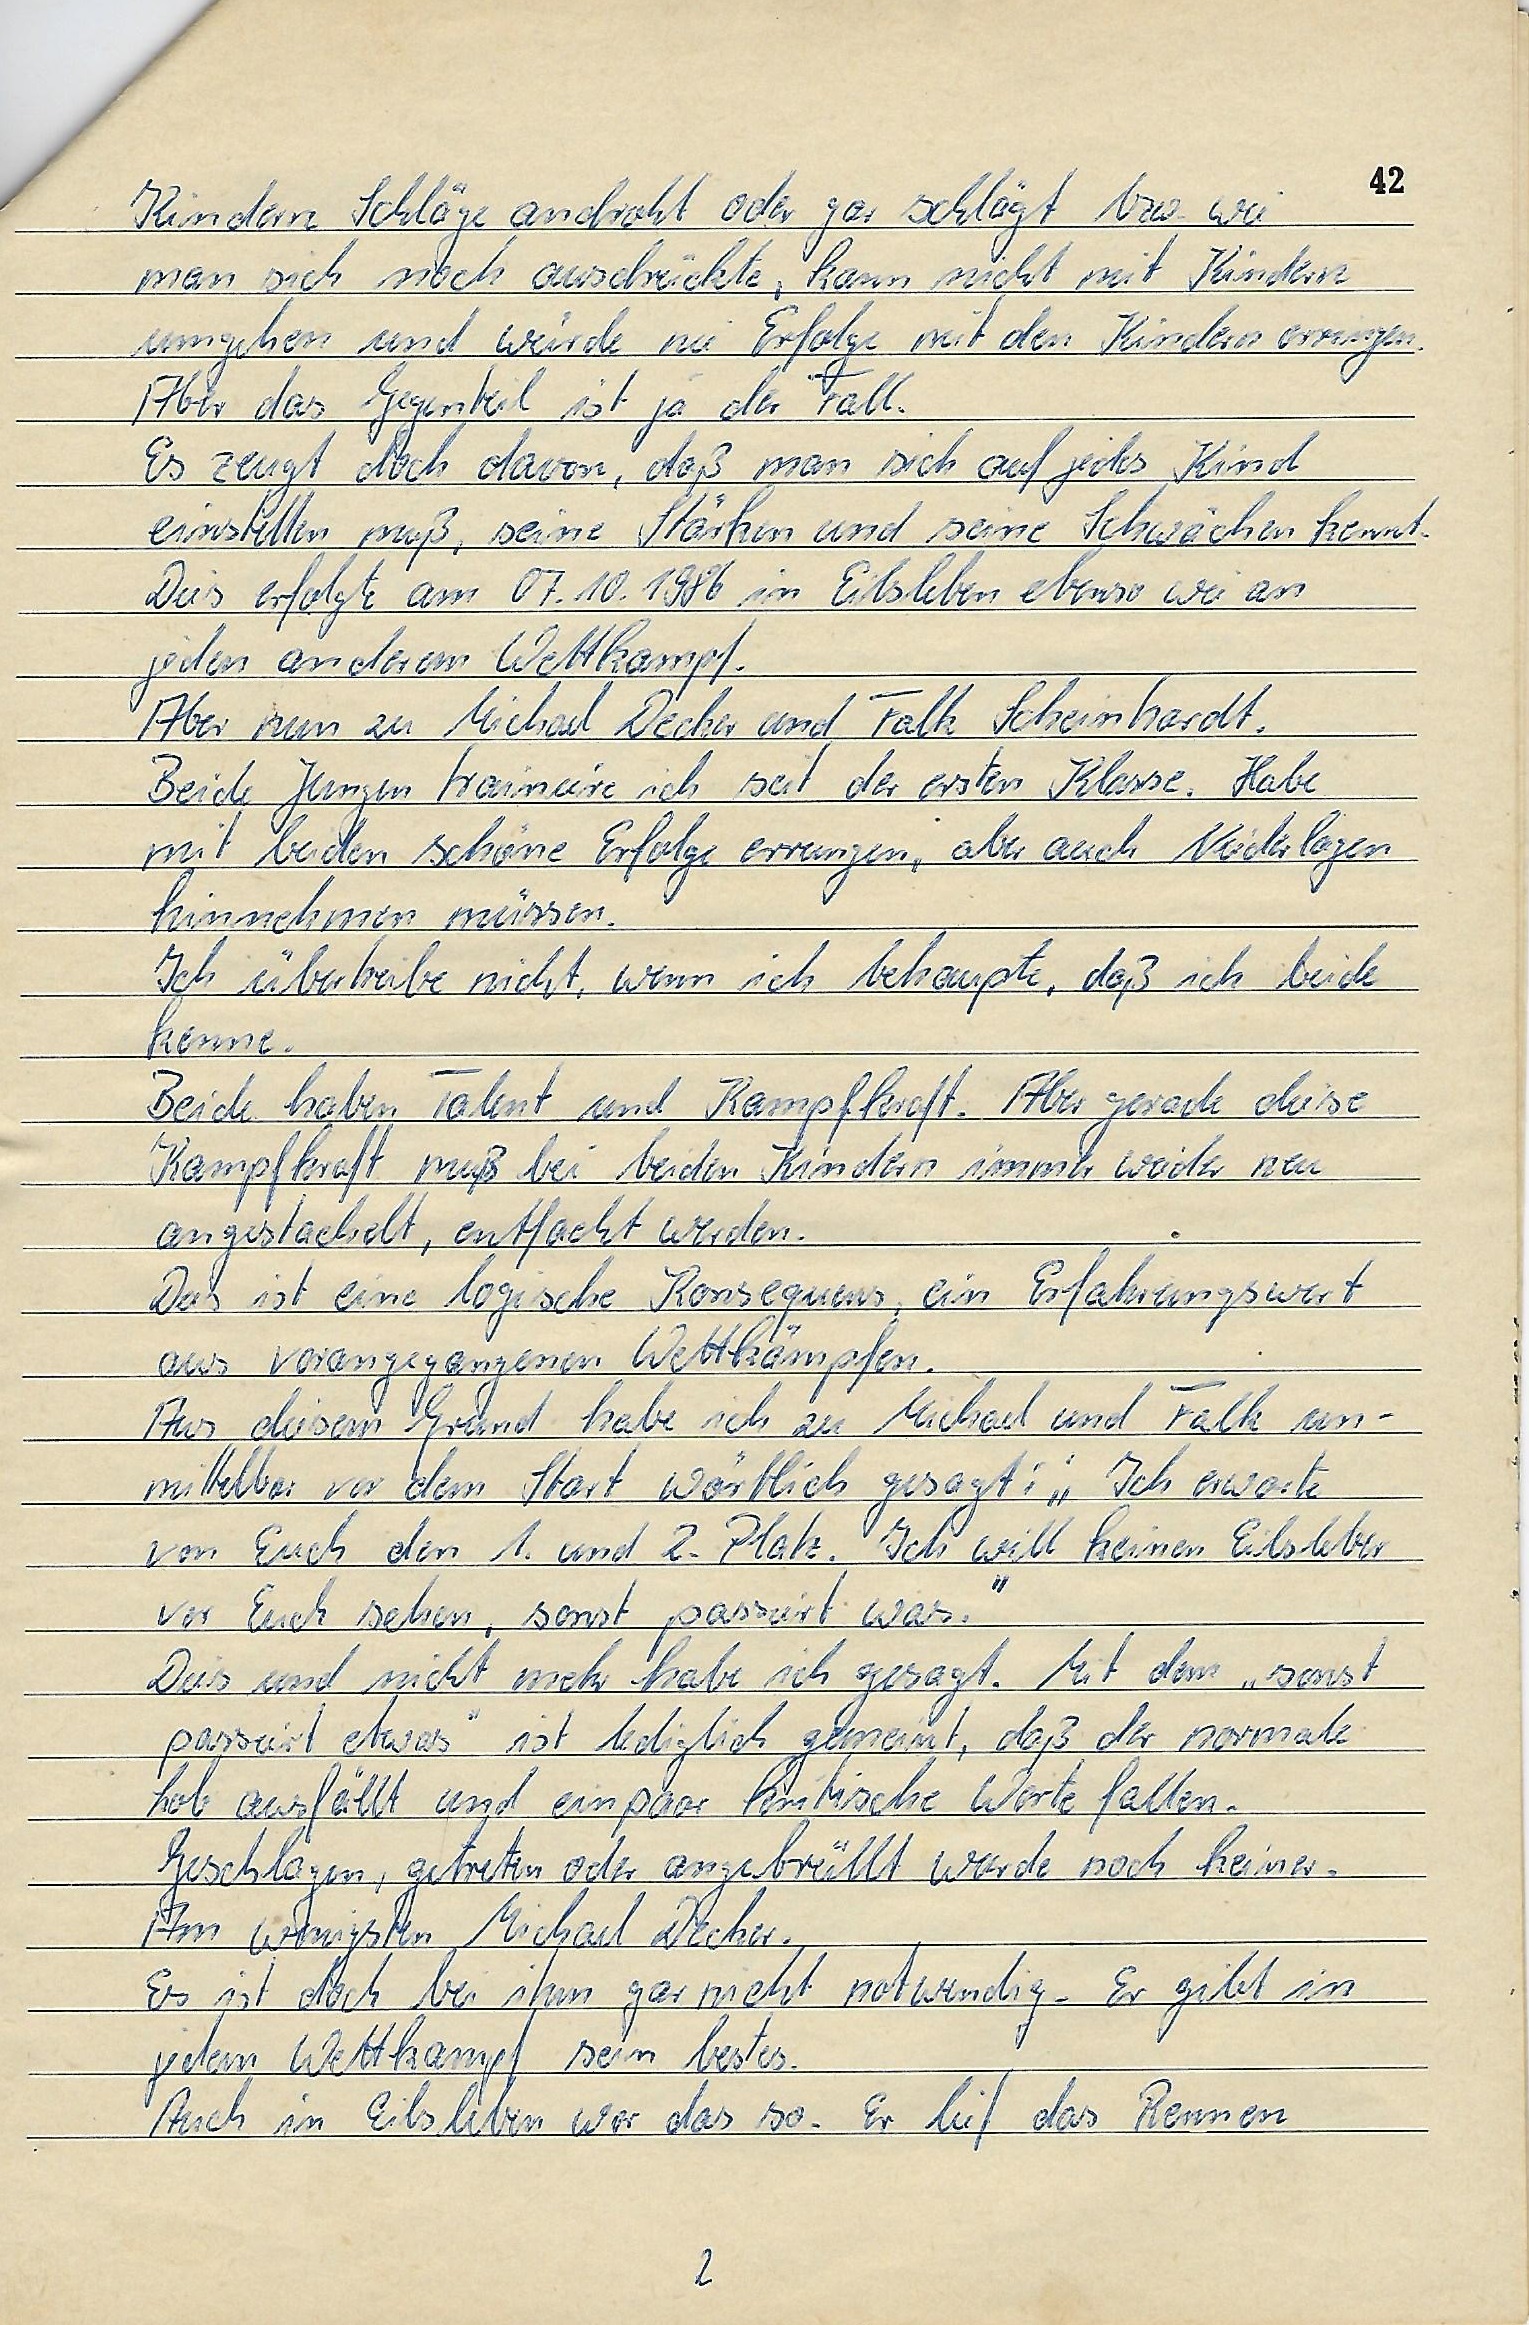 42
Kindern Schläge androht oder gar schlägt bzw. wie
man sich noch ausdrückte, kann nicht mit Kindern
umgehen und würde nie Erfolge mit den Kindern erringen.
Aber das Gegenteil ist ja der Fall.
Es zeugt doch davon, daß man sich auf jedes Kind
einstellen muß, seine Stärken und seine Schwächen kennt.
Dies erfolgte am 07.10.1986 in Eilsleben ebenso wie an
jeden anderem Wettkampf.
Aber nun zu Michael Decker und Falk Scheinhardt.
Beide Jungen trainiere ich seit der ersten Klasse. Habe
mit beiden schöne Erfolge errungen, aber auch Niederlagen
hinnehmen müssen.
Ich übertreibe nicht, wenn ich behaupte, daß ich beide
kenne.
Beide haben Talent und Kampfkraft. Aber gerade diese
Kampfkraft muß bei beiden Kindern immer wieder neu
angestachelt, entfacht werden.
Das ist eine logische Konsequens, ein Erfahrungswert
aus vorangegangenen Wettkämpfen.
Aus diesem Grund habe ich zu Michael und Falk un-
mittelbar vor dem Start wörtlich gesagt: „Ich erwarte
von Euch den 1. und 2. Platz. Ich will keinen Eilsleber
vor Euch sehen, sonst passiert was."
Dies und nicht mehr habe ich gesagt. Mit dem „sonst
passiert etwas" ist lediglich gemeint, daß der normale
Lob ausfällt und einpaar kritische Worte fallen.
Geschlagen, getreten oder angebrüllt wurde noch keiner.
Am wenigsten Michael Decker.
Es ist doch bei ihm gar nicht notwendig. Er gibt in
jedem Wettkampf sein bestes.
Auch in Eilsleben war das so. Er lief das Rennen
2